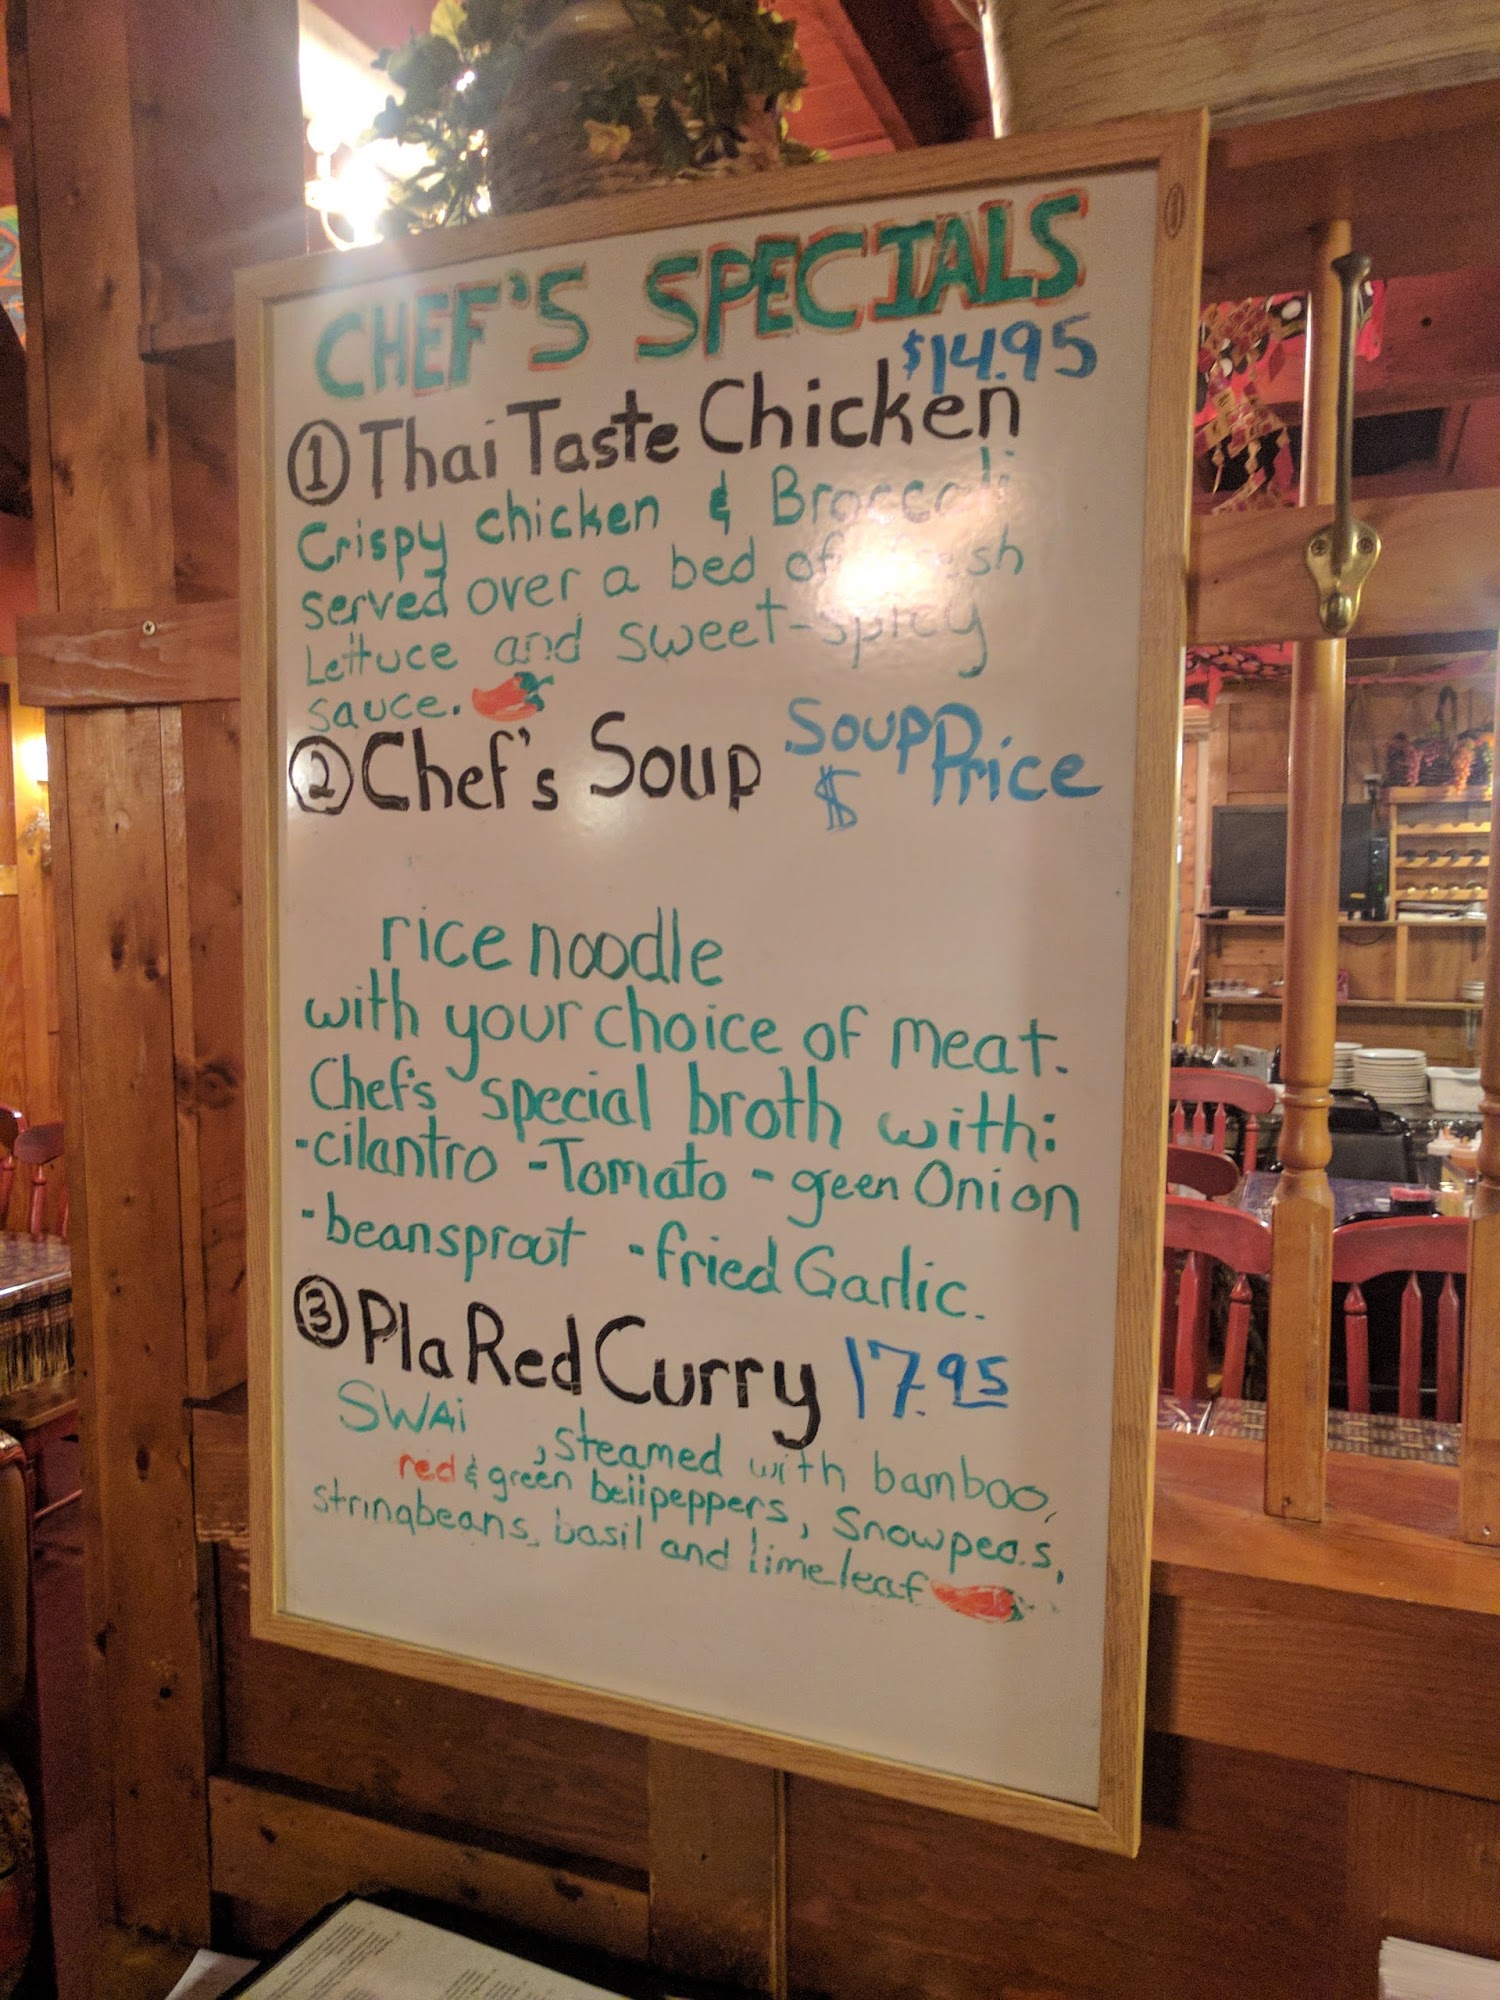 CHEF'S SPECIALS
$14.95
① Thai Taste Chicken
Crispy chicken & Broccoli
served over a bed of fresh
Lettuce and sweet-spicy
sauce.
② Chef's Soup Soup Price
$
rice noodle
with your choice of meat.
Chef's special broth with:
-cilantro -Tomato - geen Onion
-beansprout -fried Garlic.
③ Pla Red Curry 17.95
SWAi , steamed with bamboo,
red & green bellpeppers, Snowpeas,
stringbeans, basil and limeleaf